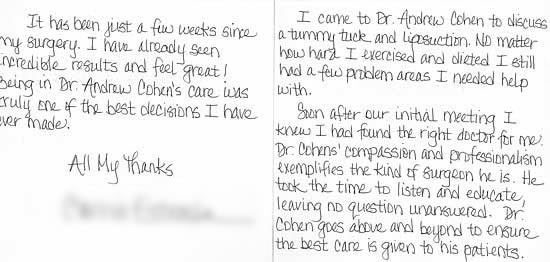 It has been just a few weeks since
my surgery. I have already seen
incredible results and feel great!
Being in Dr. Andrew Cohen's care was
truly one of the best decisions I have
ever made.
All My Thanks
I came to Dr. Andrew Cohen to discuss
a tummy tuck and liposuction. No matter
how hard I exercised and dieted I still
had a few problem areas I needed help
with.
Soon after our initial meeting I
knew I had found the right doctor for me.
Dr. Cohens' compassion and professionalism
exemplifies the kind of surgeon he is. He
took the time to listen and educate,
leaving no question unanswered. Dr.
Cohen goes above and beyond to ensure
the best care is given to his patients.